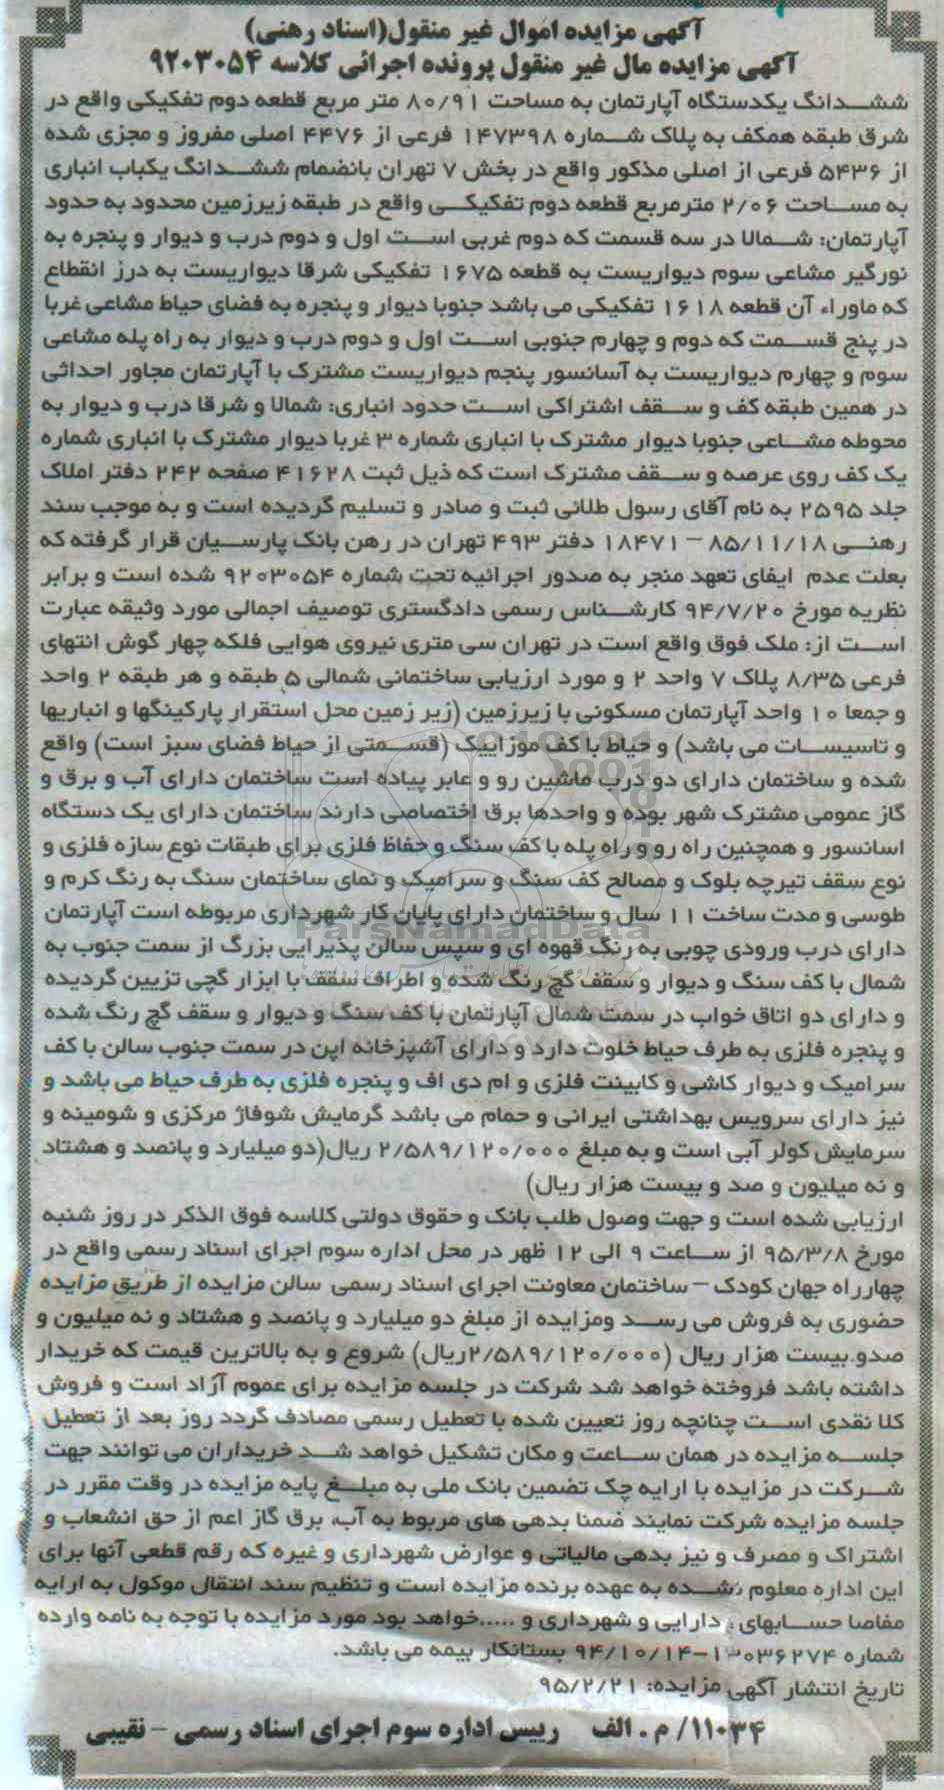 آگهی مزایده اموال غیر منقول(اسناد رهنی)
آگهی مزایده مال غیر منقول پرونده اجرائی کلاسه ۹۲۰۳۰۵۴
ششدانگ یکدستگاه آپارتمان به مساحت ۸۰/۹۱ متر مربع قطعه دوم تفکیکی واقع در
شرق طبقه همکف به پلاک شماره ۱۴۷۳۹۸ فرعی از ۴۴۷۶ اصلی مفروز و مجزی شده
از ۵۴۳۶ فرعی از اصلی مذکور واقع در بخش ۷ تهران بانضمام ششدانگ یکباب انباری
به مساحت ۲/۰۶ مترمربع قطعه دوم تفکیکی واقع در طبقه زیرزمین محدود به حدود
آپارتمان: شمالا در سه قسمت که دوم غربی است اول و دوم درب و دیوار و پنجره به
نورگیر مشاعی سوم دیواریست به قطعه ۱۶۷۵ تفکیکی شرقا دیواریست به درز انقطاع
که ماوراء آن قطعه ۱۶۱۸ تفکیکی می باشد جنوبا دیوار و پنجره به فضای حیاط مشاعی غربا
در پنج قسمت که دوم و چهارم جنوبی است اول و دوم درب و دیوار به راه پله مشاعی
سوم و چهارم دیواریست به آسانسور پنجم دیواریست مشترک با آپارتمان مجاور احداثی
در همین طبقه کف و سقف اشتراکی است حدود انباری: شمالا و شرقا درب و دیوار به
محوطه مشاعی جنوبا دیوار مشترک با انباری شماره ۳ غربا دیوار مشترک با انباری شماره
یک کف روی عرصه و سقف مشترک است که ذیل ثبت ۴۱۶۲۸ صفحه ۲۴۲ دفتر املاک
جلد ۲۵۹۵ به نام آقای رسول طلائی ثبت و صادر و تسلیم گردیده است و به موجب سند
رهنی ۸۵/۱۱/۱۸ – ۱۸۴۷۱ دفتر ۴۹۳ تهران در رهن بانک پارسیان قرار گرفته که
بعلت عدم ایفای تعهد منجر به صدور اجرائیه تحت شماره ۹۲۰۳۰۵۴ شده است و برابر
نظریه مورخ ۹۴/۷/۲۰ کارشناس رسمی دادگستری توصیف اجمالی مورد وثیقه عبارت
است از: ملک فوق واقع است در تهران سی متری نیروی هوایی فلکه چهار گوش انتهای
فرعی ۸/۳۵ پلاک ۷ واحد ۲ و مورد ارزیابی ساختمانی شمالی ۵ طبقه و هر طبقه ۲ واحد
و جمعا ۱۰ واحد آپارتمان مسکونی با زیرزمین (زیر زمین محل استقرار پارکینگها و انباریها
و تاسیسات می باشد) و حیاط با کف موزاییک (قسمتی از حیاط فضای سبز است) واقع
شده و ساختمان دارای دو درب ماشین رو و عابر پیاده است ساختمان دارای آب و برق و
گاز عمومی مشترک شهر بوده و واحدها برق اختصاصی دارند ساختمان دارای یک دستگاه
اسانسور و همچنین راه رو و راه پله با کف سنگ و حفاظ فلزی برای طبقات نوع سازه فلزی و
نوع سقف تیرچه بلوک و مصالح کف سنگ و سرامیک و نمای ساختمان سنگ به رنگ کرم و
طوسی و مدت ساخت ۱۱ سال و ساختمان دارای پایان کار شهرداری مربوطه است آپارتمان
دارای درب ورودی چوبی به رنگ قهوه ای و سپس سالن پذیرایی بزرگ از سمت جنوب به
شمال با کف سنگ و دیوار و سقف گچ رنگ شده و اطراف سقف با ابزار گچی تزیین گردیده
و دارای دو اتاق خواب در سمت شمال آپارتمان با کف سنگ و دیوار و سقف گچ رنگ شده
و پنجره فلزی به طرف حیاط خلوت دارد و دارای آشپزخانه اپن در سمت جنوب سالن با کف
سرامیک و دیوار کاشی و کابینت فلزی و ام دی اف و پنجره فلزی به طرف حیاط می باشد و
نیز دارای سرویس بهداشتی ایرانی و حمام می باشد گرمایش شوفاژ مرکزی و شومینه و
سرمایش کولر آبی است و به مبلغ ۲/۵۸۹/۱۲۰/۰۰۰ ریال(دو میلیارد و پانصد و هشتاد
و نه میلیون و صد و بیست هزار ریال)
ارزیابی شده است و جهت وصول طلب بانک و حقوق دولتی کلاسه فوق الذکر در روز شنبه
مورخ ۹۵/۳/۸ از ساعت ۹ الی ۱۲ ظهر در محل اداره سوم اجرای اسناد رسمی واقع در
چهارراه جهان کودک – ساختمان معاونت اجرای اسناد رسمی سالن مزایده از طریق مزایده
حضوری به فروش می رسد ومزایده از مبلغ دو میلیارد و پانصد و هشتاد و نه میلیون و
صدو بیست هزار ریال (۲/۵۸۹/۱۲۰/۰۰۰ریال) شروع و به بالاترین قیمت که خریدار
داشته باشد فروخته خواهد شد شرکت در جلسه مزایده برای عموم آزاد است و فروش
کلا نقدی است چنانچه روز تعیین شده با تعطیل رسمی مصادف گردد روز بعد از تعطیل
جلسه مزایده در همان ساعت و مکان تشکیل خواهد شد خریداران می توانند جهت
شرکت در مزایده با ارایه چک تضمین بانک ملی به مبلغ پایه مزایده در وقت مقرر در
جلسه مزایده شرکت نمایند ضمنا بدهی های مربوط به آب، برق گاز اعم از حق انشعاب و
اشتراک و مصرف و نیز بدهی مالیاتی و عوارض شهرداری و غیره که رقم قطعی آنها برای
این اداره معلوم نشده به عهده برنده مزایده است و تنظیم سند انتقال موکول به ارایه
مفاصا حسابهای دارایی و شهرداری و .....خواهد بود مورد مزایده با توجه به نامه وارده
شماره ۱۳۰۳۶۲۷۴–۹۴/۱۰/۱۴ بستانکار بیمه می باشد.
تاریخ انتشار آگهی مزایده: ۹۵/۲/۲۱
۱۱۰۳۴/ م . الف رییس اداره سوم اجرای اسناد رسمی – نقیبی
ParsNamadData